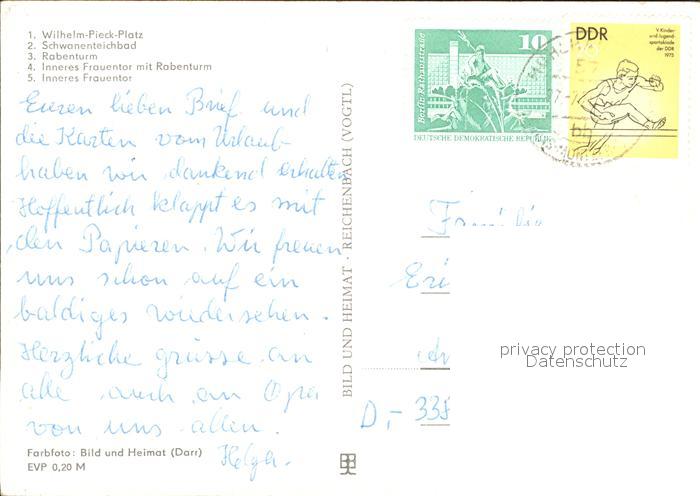 1. Wilhelm-Pieck-Platz
2. Schwanenteichbad
3. Rabenturm
4. Inneres Frauentor mit Rabenturm
5. Inneres Frauentor
Eueren lieben Brief und
die Karten vom Urlaub
haben wir dankend erhalten
Hoffentlich klappt es mit
den Papieren. Wir freuen
uns schon auf ein
baldiges wiedersehen.
Herzliche grüsse an
alle auch an Opa
von uns allen.
Helga.
Farbfoto: Bild und Heimat (Darr)
EVP 0,20 M
BILD UND HEIMAT · REICHENBACH (VOGTL)
Berlin-Rathausstraße
10
DEUTSCHE DEMOKRATISCHE REPUBLIK
DDR
V. Kinder-
und Jugend-
spartakiade
der DDR
1975
Familie
Eri
D,- 335
privacy protection
Datenschutz